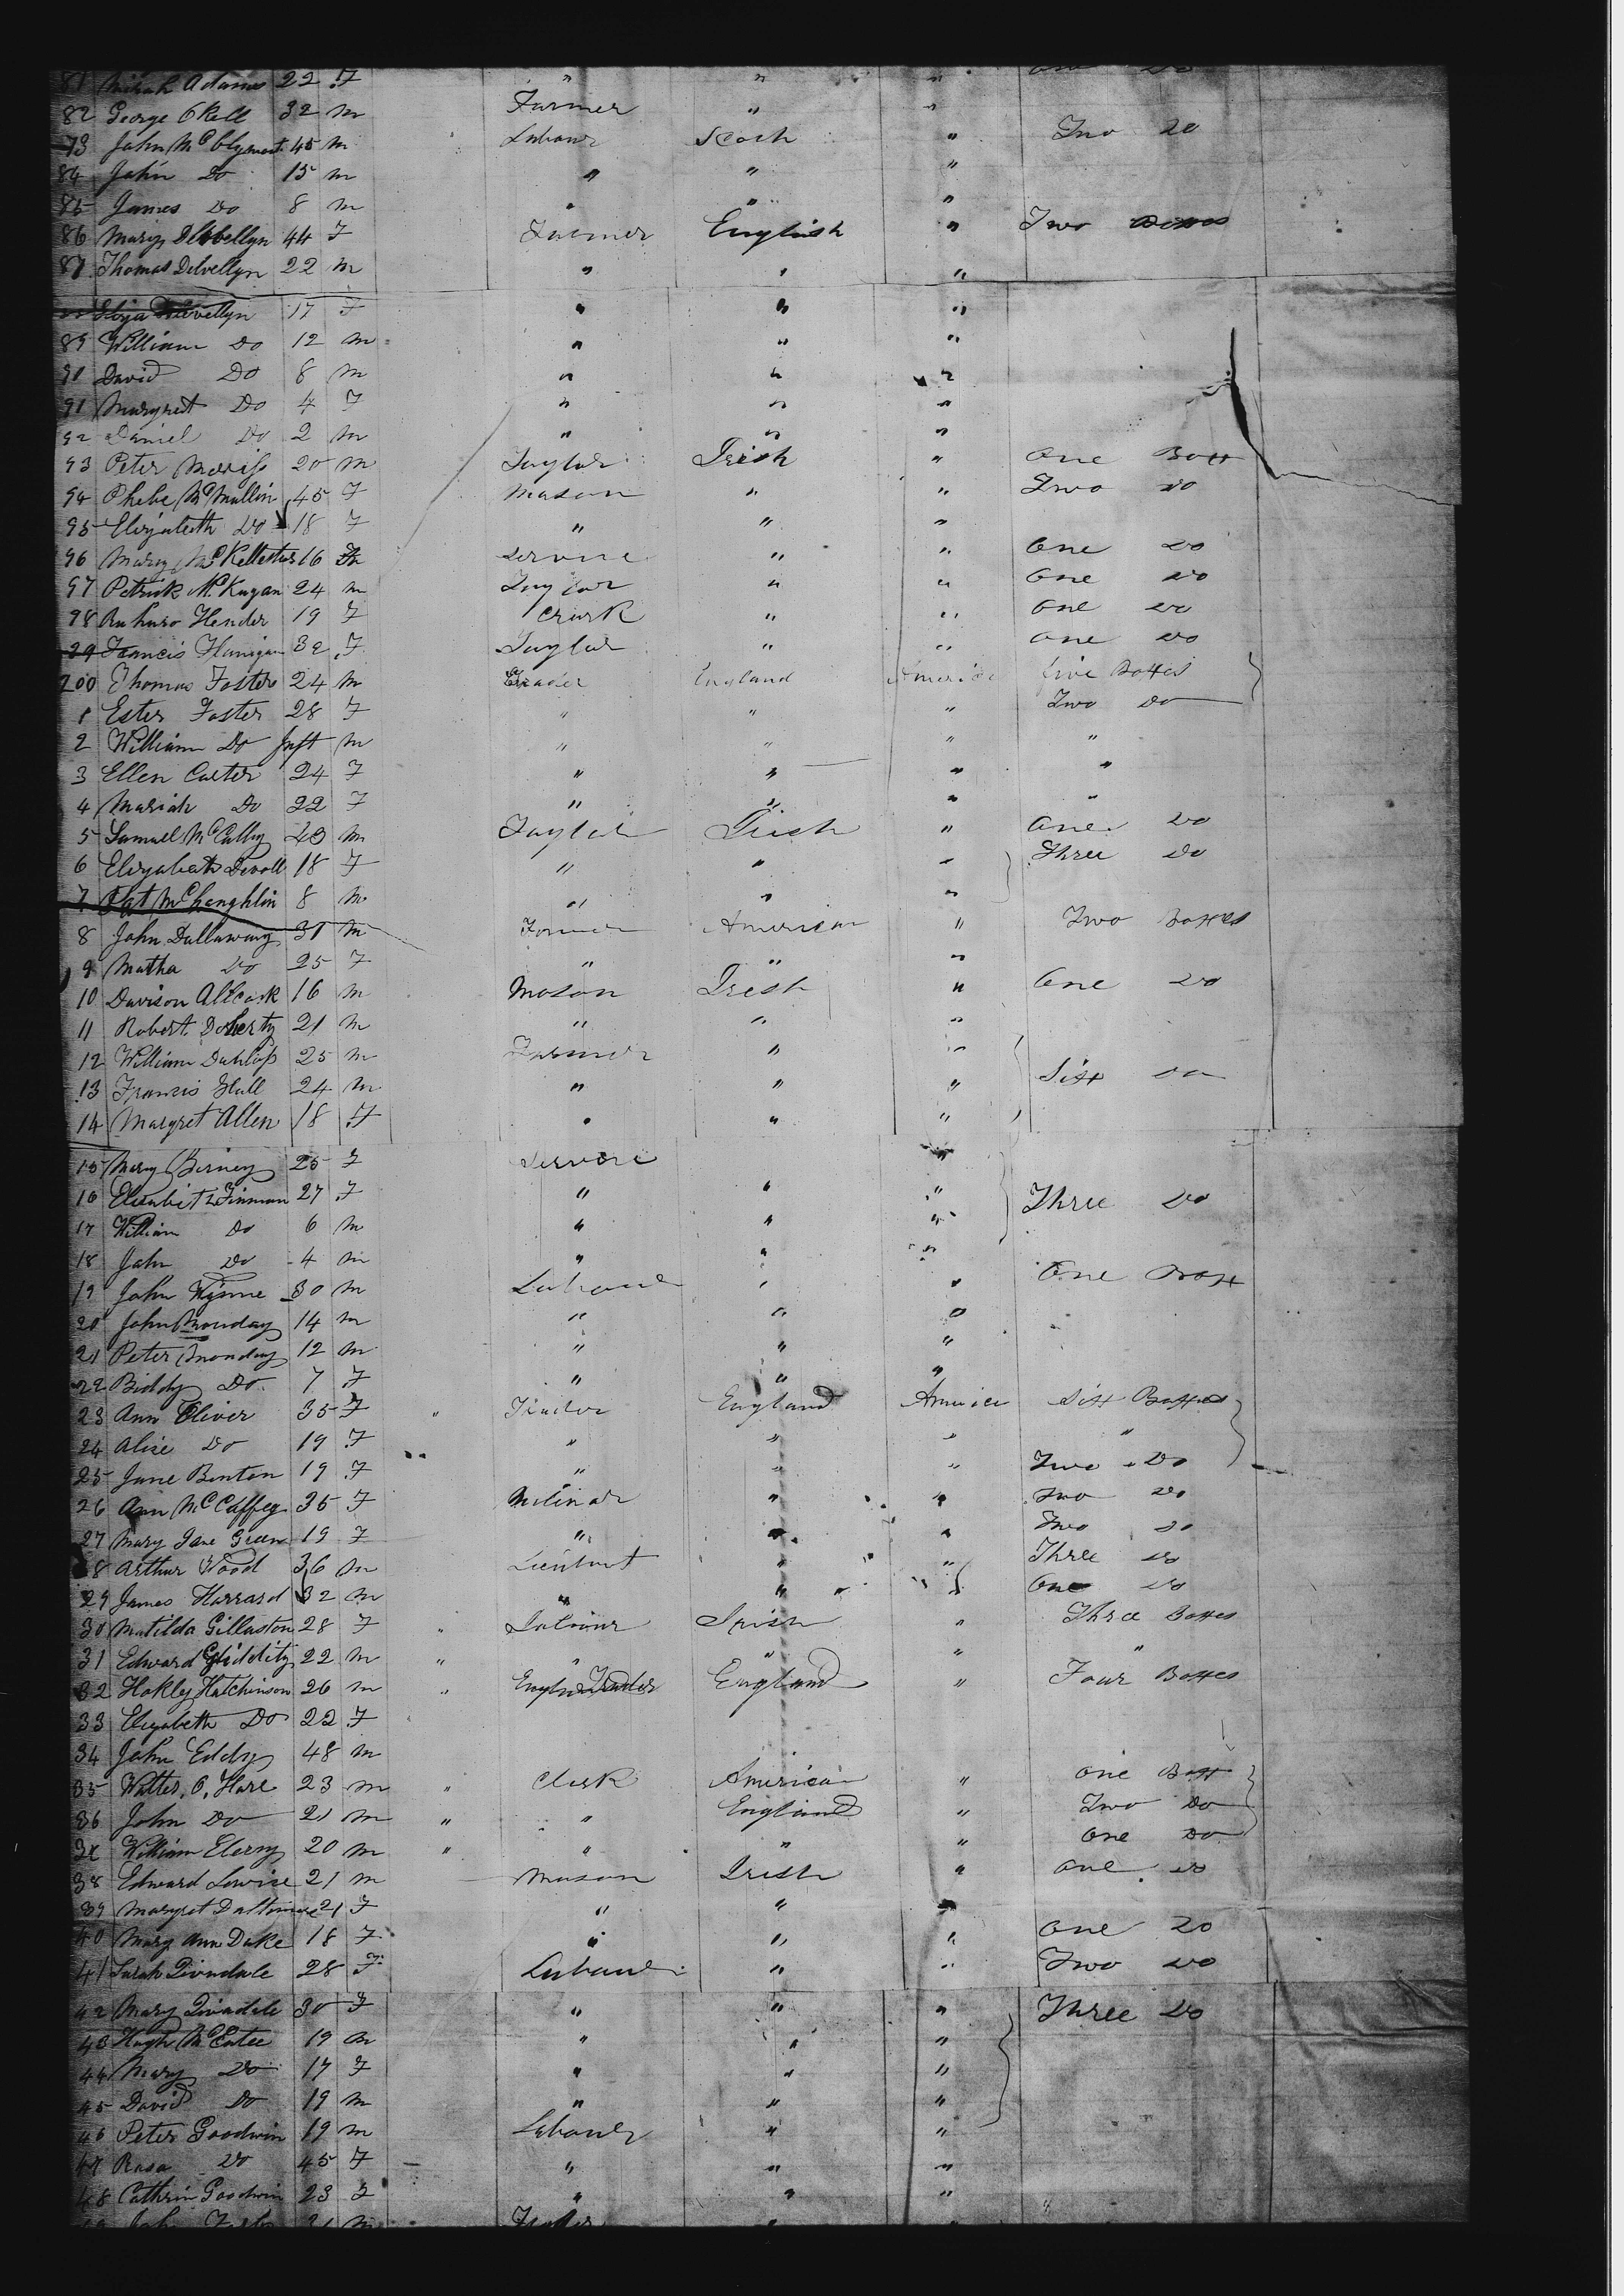 81 Adams 22 F " " " One Do
82 George 32 m Farmer " "
73 John 45 m Labour Scoth " Two Do
84 John Do 15 m " " "
85 James Do 8 m " " "
86 Mary 44 F Farmer English " Two Boxes
87 Thomas Delvellyn 22 m " " "
17 F " " "
89 William Do 12 m " " "
90 David Do 8 m " " "
91 Margret Do 4 F " " "
92 Daniel Do 2 m " " "
93 Peter 20 m Taylor Irish " One Box
94 Phebe McMullin 45 F Mason " " Two Do
95 Elizabeth Do 18 F " " "
96 Mary 16 " " One Do
97 Petrick 24 m Taylor " " One Do
98 Hender 19 F " " One Do
99 Francis Flanigan 32 F Taylor " " One Do
200 Thomas Foster 24 m England America five Boxes
1 Ester Foster 28 F " " " Two Do
2 William Do Inft m " " " "
3 Ellen Carter 24 F " " " "
4 Mariah Do 22 F " " " "
5 Samuel 20 m Taylor Irish " One Do
6 Elizabeth 18 F " " " Three Do
7 Pat McLaughlin 8 m " " "
8 John Dallaway 31 m Farmer American " Two Boxes
9 Matha Do 25 F " " "
10 Davison 16 m Mason Irish " One Do
11 Robert Doherty 21 m " " "
12 William 25 m Farmer " "
13 Francis Hall 24 m " " " Six Do
14 Margret Allen 18 F " " "
15 Mary Birney 25 F " "
16 Finman 27 F " " " Three Do
17 William Do 6 m " " "
18 John Do 4 m " " "
19 John Wynne 30 m Labour " " One Box
20 John Monday 14 m " " "
21 Peter Monday 12 m " " "
22 Biddy Do 7 F " " "
23 Ann Oliver 35 F " Trader England America Six Boxes
24 Alice Do 19 F " " " "
25 Jane Benton 19 F " " " Two Do
26 Ann McCaffey 35 F Milinar " " Two Do
27 Mary Jane Green 19 F " " " Two Do
28 Arthur Wood 36 m " " Three Do
29 James Harrard 32 m " " " One Do
30 Matilda Gillaston 28 F " Labour Irish " Three Boxes
31 Edward 22 m " " " " "
32 Hokley Hutchinson 26 m " Trader England " Four Boxes
33 Elizabeth Do 22 F
34 John Eddy 48 m
35 Walter O. Hare 23 m " Clerk American " One Box
36 John Do 21 m " " England " Two Do
William 20 m " " " " One Do
38 Edward Lowrie 21 m Mason Irish " One Do
39 Margret 21 F " " "
40 Mary Ann Duke 18 F " " " One Do
41 Sarah 28 F Labour " " Two Do
42 Mary 30 F " " " Three Do
43 Hugh McEntee 19 m " " "
44 Mary Do 17 F " " "
45 David Do 19 m " " "
46 Peter Goodwin 19 m Labour " "
47 Rosa Do 45 F " " "
48 Cathrin Goodwin 23 F " " "
John 21 m " "